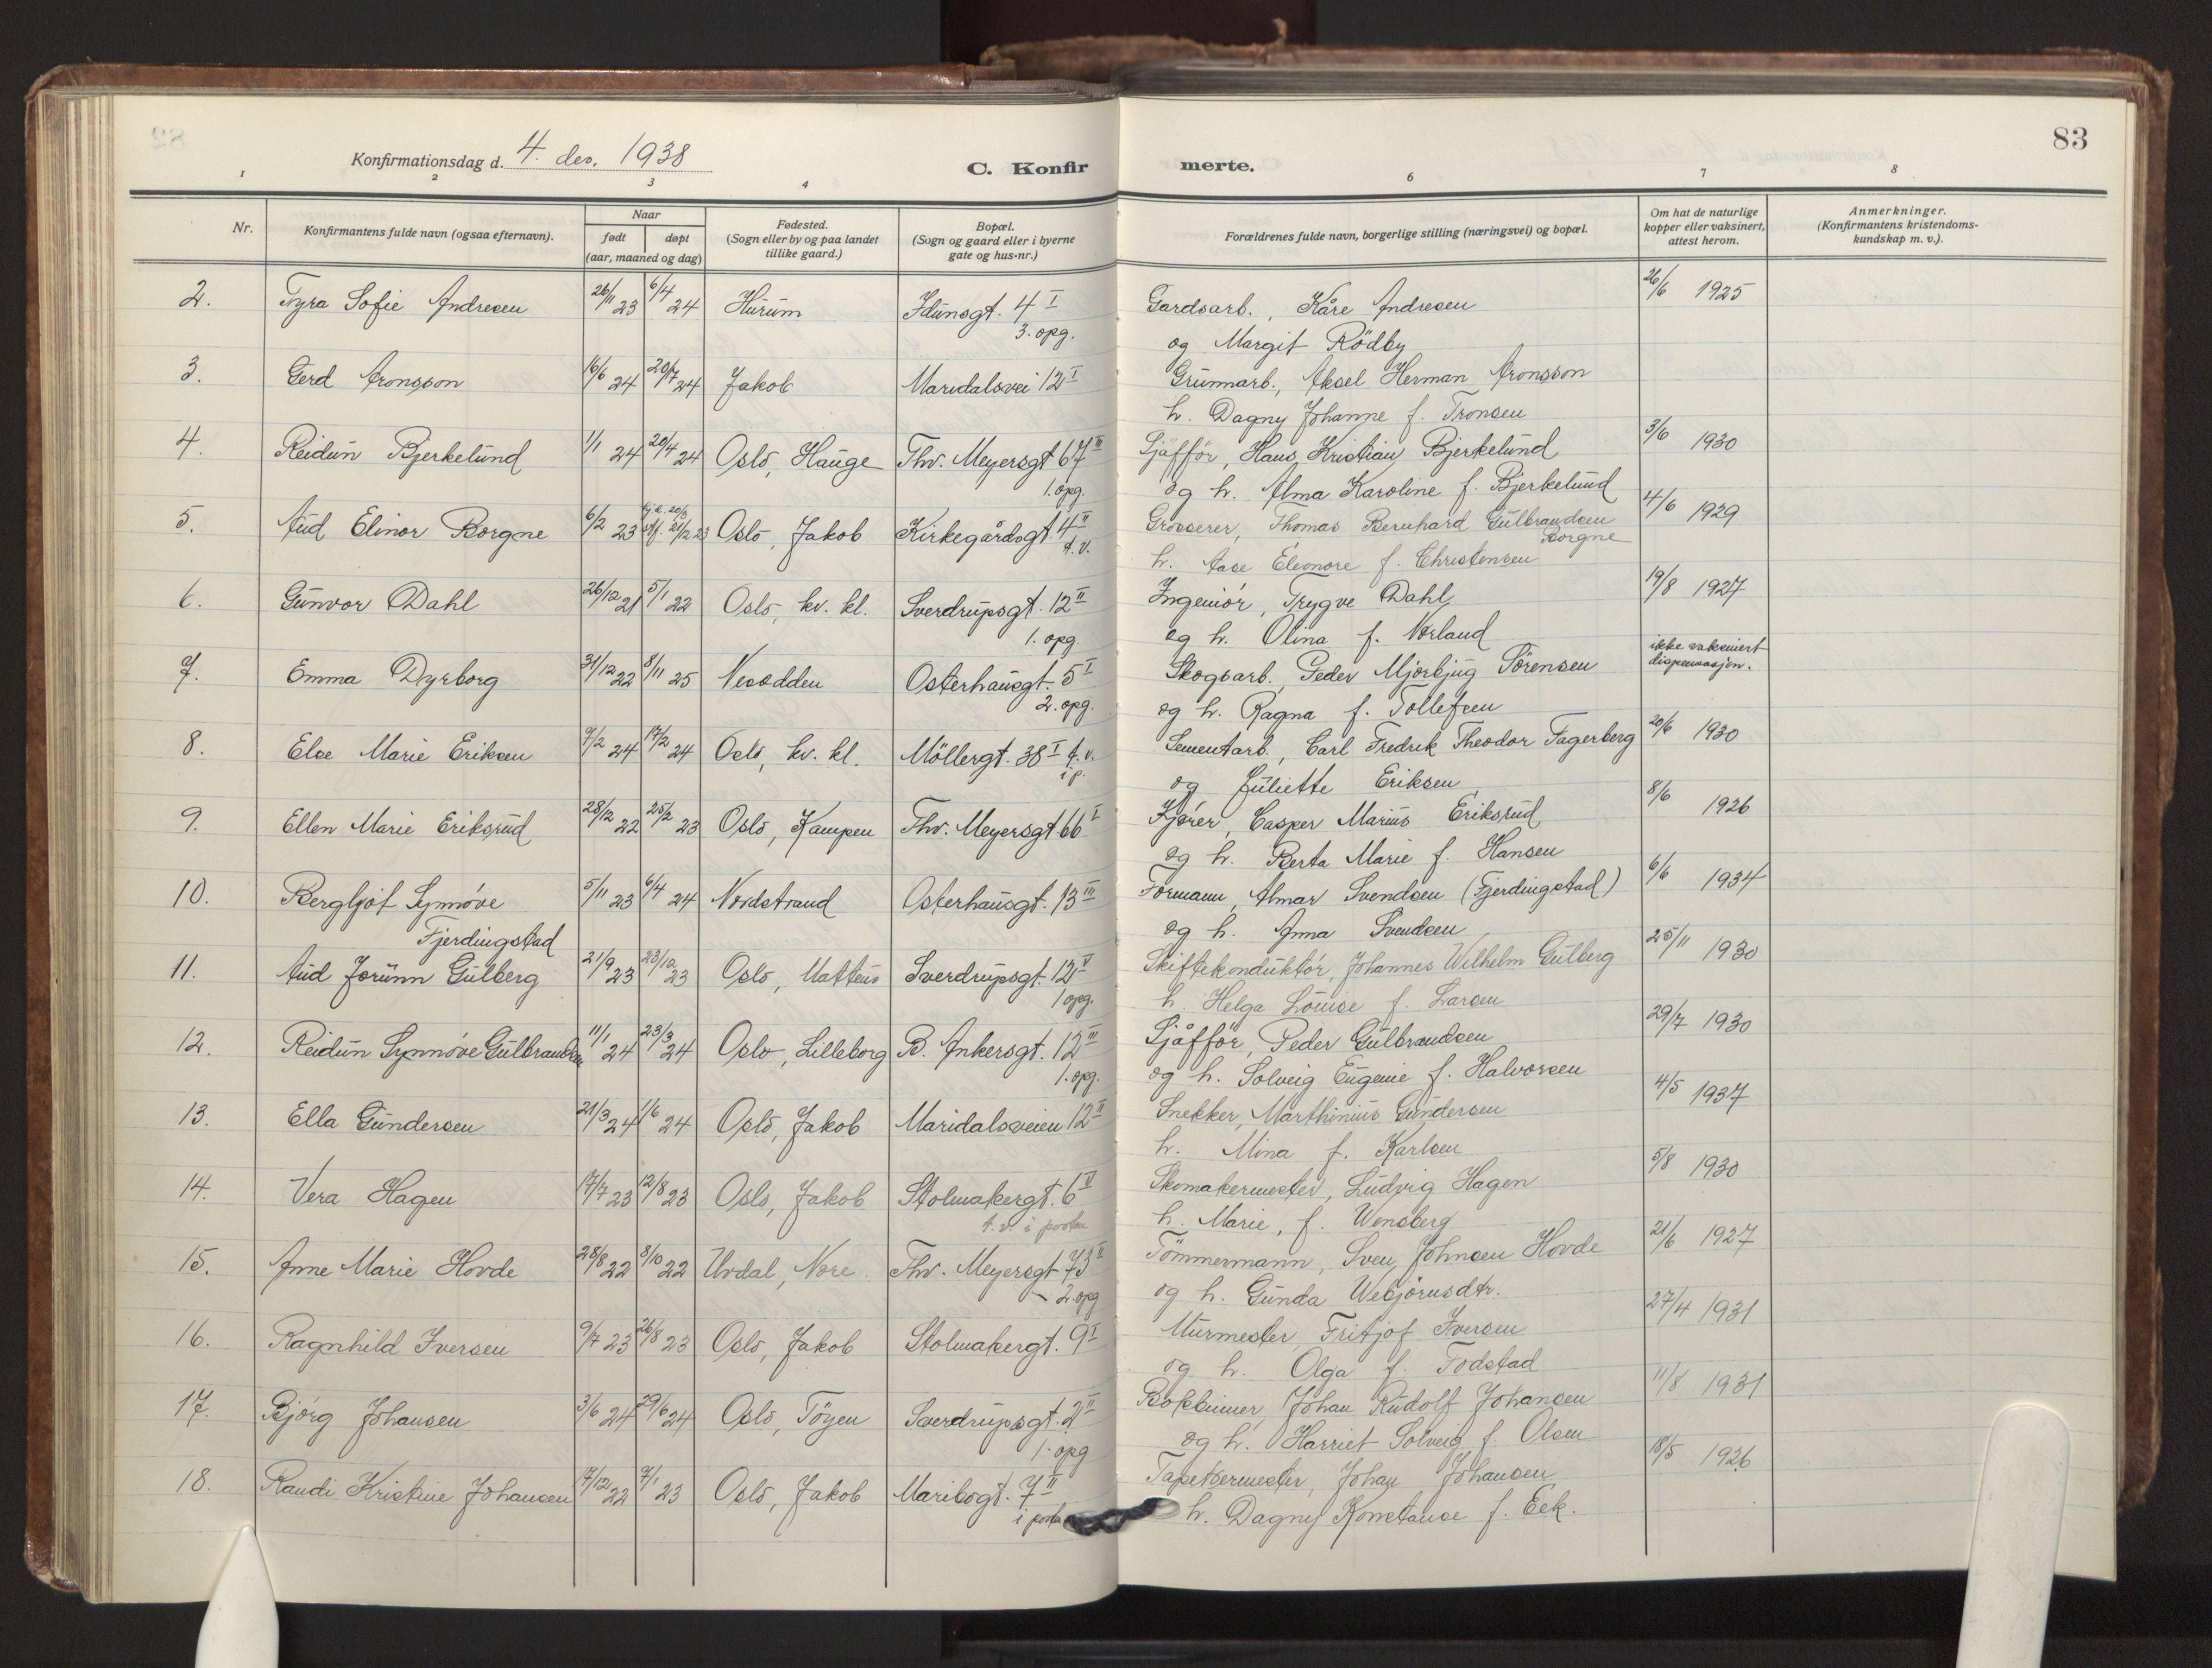 83
Konfirmationsdag d. 4. des. 1938
C. Konfir merte.
1 2 3 4 6 7 8
Nr.
Konfirmantens fulde navn (ogsaa efternavn).
Naar
født døpt
(aar, maaned og dag)
Fødested.
(Sogn eller by og paa landet
tillike gaard.)
Bopæl.
(Sogn og gaard eller i byerne
gate og hus-nr.)
Forældrenes fulde navn, borgerlige stilling (næringsvei) og bopæl.
Om hat de naturlige
kopper eller vaksinert,
attest herom.
Anmerkninger.
(Konfirmantens kristendoms-
kundskap m. v.).
2. Tyra Sofie Andresen 26/11 23 6/4 24 Hurum Idunsgt. 4 I Gardsarb., Kåre Andresen 26/6 1925
3. opg. og Margit Rödby
3. Gerd Aronsson 16/6 24 20/7 24 Jakob Maridalsvei 12 I Grunnarb., Aksel Herman Aronsson
h. Dagny Johanne f. Tronsen
4. Reidun Bjerkelund 1/1 24 20/4 24 Oslo, Hauge Thv. Meyersgt 67 III Sjåfför, Hans Kristian Bjerkelund 3/6 1930
1. opg. og h. Alma Karoline f. Bjerkelund
5. Aud Elinor Borgne 6/2 23 Oslo, Jakob Kirkegårdsgt. 4 II Grosserer, Thomas Bernhard Gulbrandsen 4/6 1929
t.v. Borgne
h. Aase Eleonore f. Christensen
6. Gunvor Dahl 26/12 21 5/1 22 Oslo, kv. kl. Sverdrupsgt. 12 II Ingeniör, Trygve Dahl 19/8 1927
1. opg. og h. Olina f. Nerland
7. Emma Dyrborg 31/12 22 8/11 25 Nesodden Osterhausgt. 5 I Skogsarb. Peder Mjorbjug Sörensen ikke vaksinert
2. opg. og h. Ragna f. Tollefsen dispensasjon.
8. Else Marie Eriksen 9/2 24 17/2 24 Oslo, kv. kl. Möllergt. 38 I t.v. Sementarb., Carl Fredrik Theodor Fagerberg 20/6 1930
i p. og Juliette Eriksen
9. Ellen Marie Eriksrud 28/12 22 25/2 23 Oslo, Kampen Thv. Meyersgt 66 I Kjörer, Casper Marius Eriksrud 8/6 1926
og h. Berta Marie f. Hansen
10. Bergljot Synnöve 5/11 23 6/4 24 Nordstrand Osterhausgt. 13 III Formann, Almar Svendsen (Fjerdingstad) 6/6 1934
Fjerdingstad og h. Anna Svendsen
11. Aud Jorunn Gulberg 21/9 23 23/12 23 Oslo, Matteus Sverdrupsgt. 12 V Skiftekonduktör, Johannes Wilhelm Gulberg 25/11 1930
1 opg. h. Helga Louise f. Larsen
12. Reidun Synnöve Gulbrandsen 11/1 24 23/3 24 Oslo, Lilleborg B. Ankersgt. 12 III Sjåfför, Peder Gulbrandsen 29/7 1930
1. opg. og h. Solveig Eugenie f. Halvorsen
13. Ella Gundersen 21/3 24 1/6 24 Oslo, Jakob Maridalsveien 12 II Snekker, Marthinius Gundersen 4/5 1937
h. Mina f. Karlsen
14. Vera Hagen 17/7 23 12/8 23 Oslo, Jakob Stolmakergt. 6 V Skomakermester, Ludvig Hagen 5/8 1930
t.v. i porten h. Marie, f. Wensberg
15. Anne Marie Hovde 28/8 22 8/10 22 Uvdal, Nore Thv. Meyersgt 73 II Tömmermann, Sven Johnsen Hovde 21/6 1927
2. opg og h. Gunda Webjörnsdtr.
16. Ragnhild Iversen 9/7 23 26/8 23 Oslo, Jakob Stolmakergt. 9 I Murmester, Fritjof Iversen 27/4 1931
og h. Olga f. Fodstad
17. Björg Johansen 3/6 24 29/6 24 Oslo, Töyen Sverdrupsgt. 2 II Bokbinner, Johan Rudolf Johansen 11/8 1931
1. opg og h. Harriet Solveig f. Olsen
18. Randi Kristine Johansen 17/12 22 7/1 23 Oslo, Jakob Maribogt. 7 II Tapetsermester, Johan Johansen 18/5 1926
i porten h. Dagny Konstanse f. Eek.